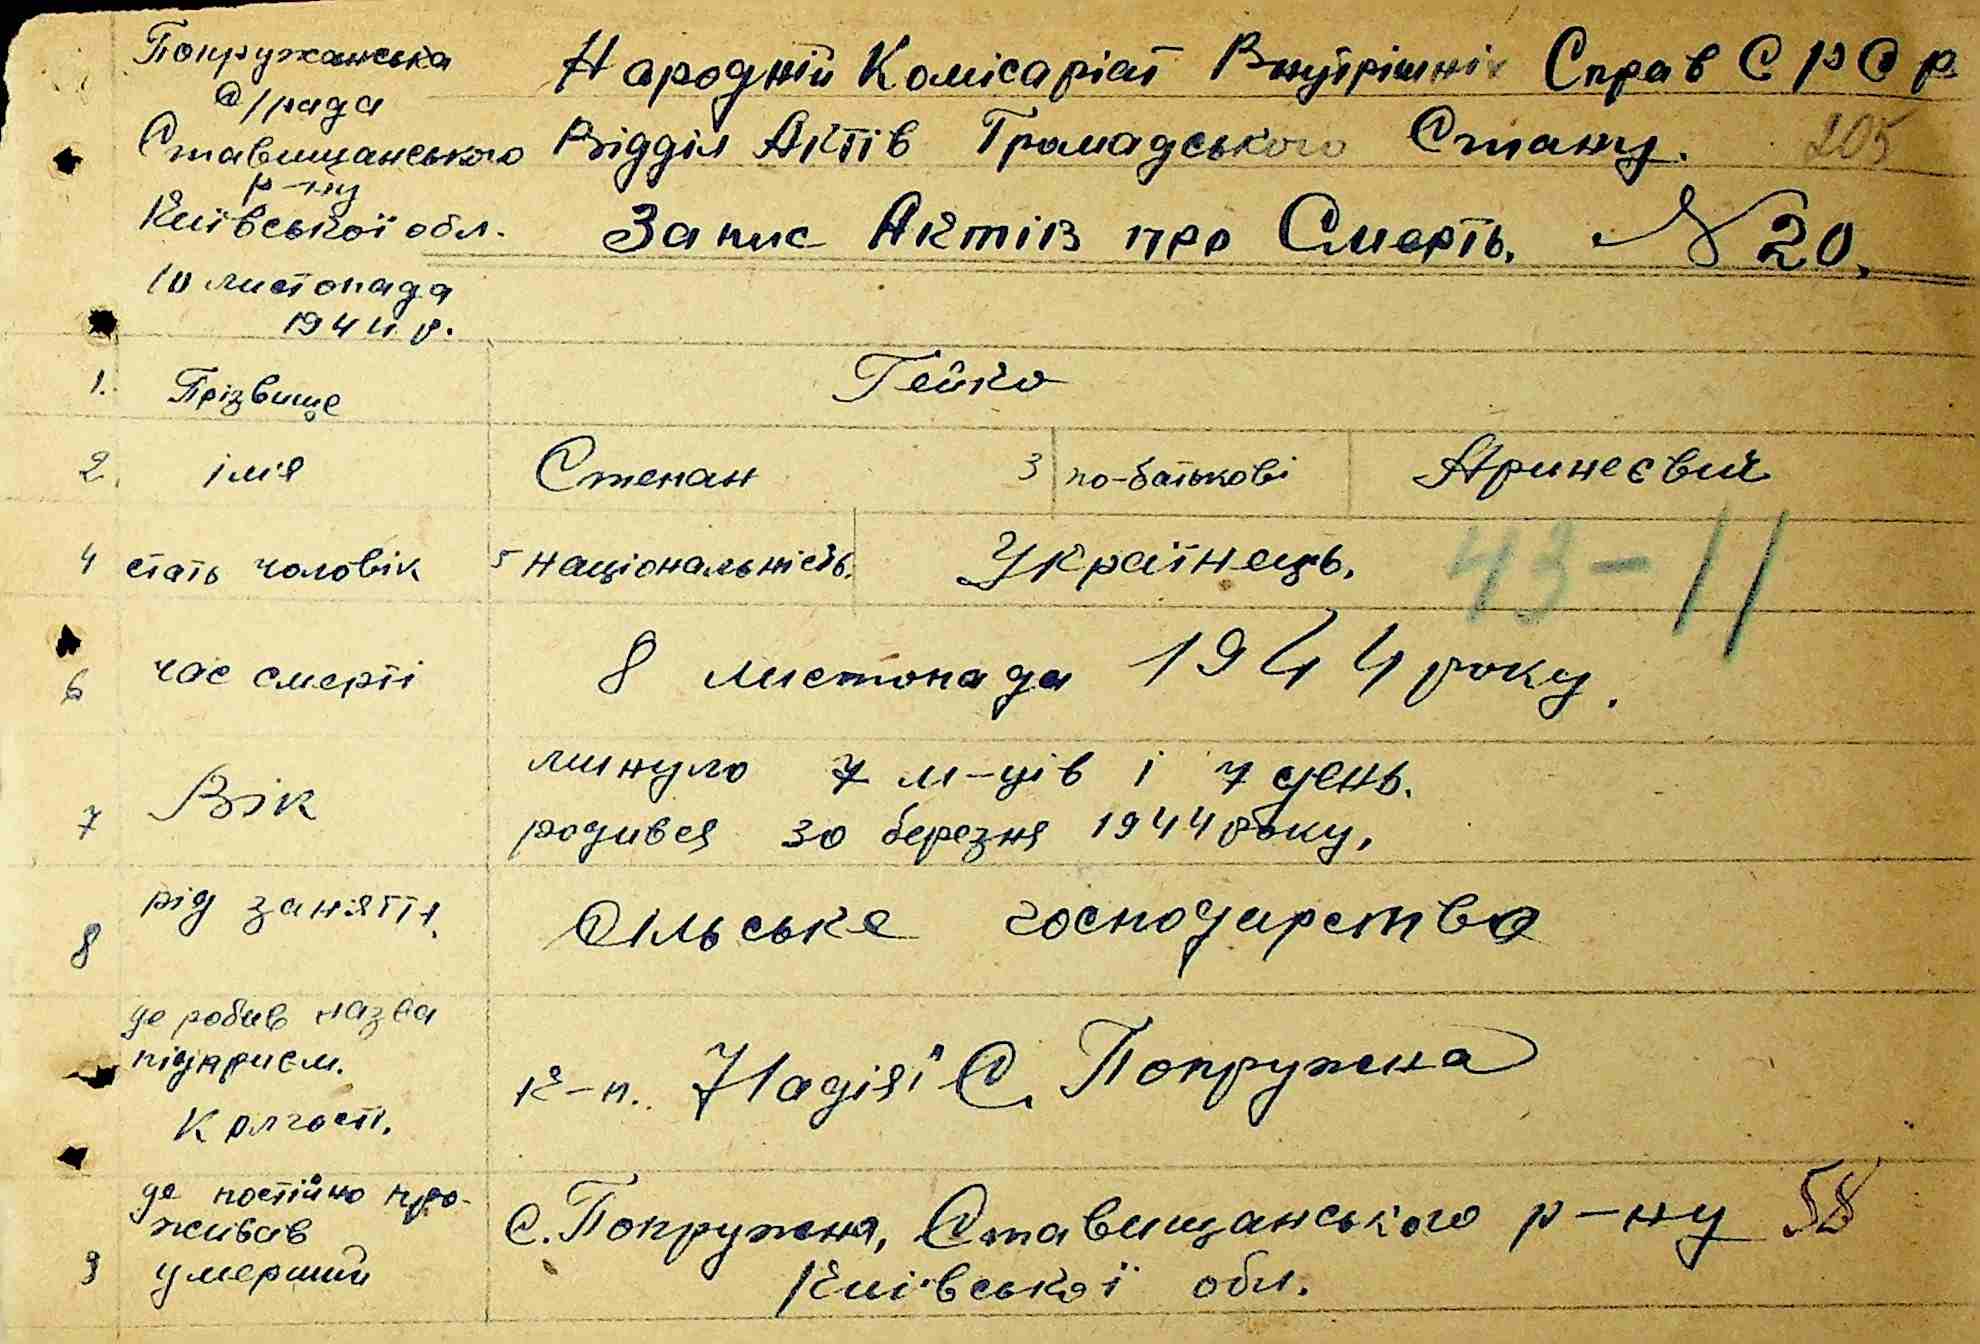 Попружанська
с/рада
Ставищанського
р-ну
Київської обл.
10 листопада
1944 р.
Народній Комісаріат Внутрішніх Справ С Р С Р
Відділ Актів Громадського Стану. 205
Запис Актів про Смерть. № 20.
1. Прізвище Гейко
2. імя Степан 3 по-батькові
4 стать чоловік 5 національність. Українець. 43-11
6 час смерті 8 листопада 1944 року.
7 Вік минуло 7 м-ців і 7 день.
родився 30 березня 1944 року.
8 рід заняття. Сільське господарство
де робив назва
підприєм. к-п. "Надія" С. Попружна
Колгосп.
9 де постійно про-
живав
умерший
С. Попружна, Ставищанського р-ну 58
Київської обл.